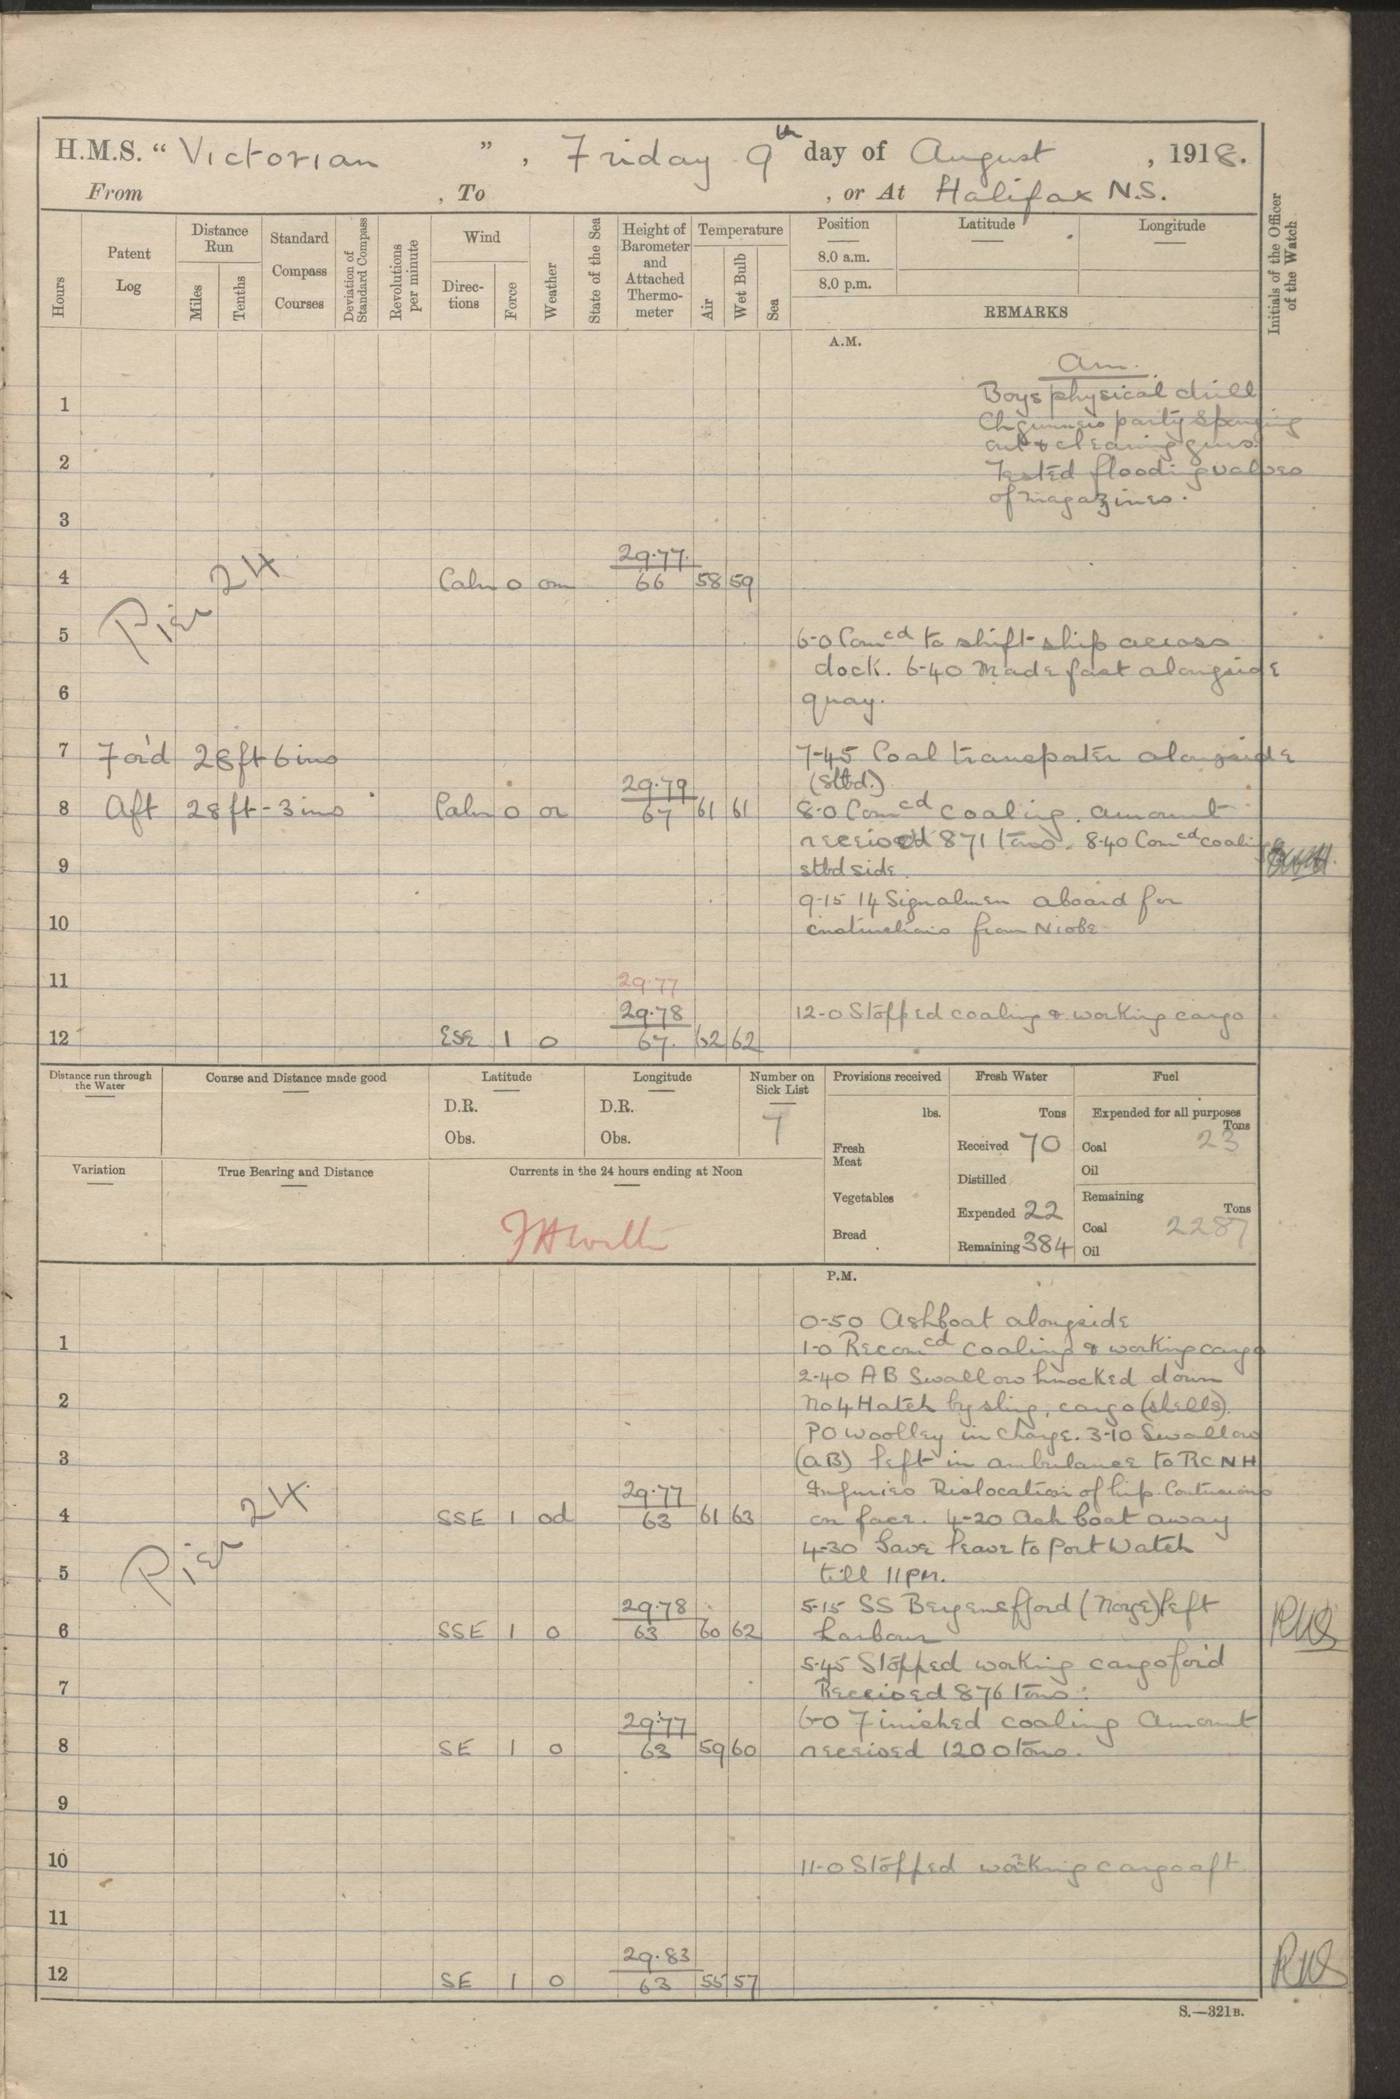 H.M.S. “ Victorian ” , Friday 9th day of August , 1918.
From , To , or At Halifax N.S.
Hours
Patent Log
Distance Run
Miles
Tenths
Standard Compass Courses
Deviation of Standard Compass
Revolutions per minute
Wind
Direc-tions
Force
Weather
State of the Sea
Height of Barometer and Attached Thermo-meter
Temperature
Air
Wet Bulb
Sea
Position
8.0 a.m.
8.0 p.m.
Latitude
Longitude
REMARKS
Initials of the Officer of the Watch
A.M.
am.
1 Boys physical drill
Ch gunners party sponging
out & cleaning guns.
2 Tested flooding valves
of magazines.
3
29.77
4 Calm 0 om 66 58 59
Pier 24
5 6-0 Comcd to shift ship across
dock. 6-40 Made fast alongside
6 quay.
7 For'd 28ft 6ins 7-45 Coal transporter alongside
(Stbd.)
29.79
8 Aft 28ft-3ins Calm 0 or 67 61 61 8-0 Comcd coaling. amount
received 871 tons. 8-40 Comcd coaling
9 stbd side.
9-15 14 Signalmen aboard for
10 instructions from Niobe
11 29.77
29.78 12-0 Stopped coaling & working cargo
12 ESE 1 0 67. 62 62
Distance run through the Water
Course and Distance made good
Latitude
D.R.
Obs.
Longitude
D.R.
Obs.
Number on Sick List
7
Provisions received
lbs.
Fresh Meat
Vegetables
Bread
Fresh Water
Tons
Received 70
Distilled
Expended 22
Remaining 384
Fuel
Expended for all purposes
Tons
Coal 23
Oil
Remaining
Tons
Coal 2287
Oil
Variation
True Bearing and Distance
Currents in the 24 hours ending at Noon
P.M.
0-50 Ashboat alongside
1 1-0 Recomcd coaling & working cargo
2-40 AB Swallow knocked down
2 No4 Hatch by sling, cargo (shells).
PO Woolley in charge. 3-10 Swallow
3 (AB) left in ambulance to RCNH
29.77 Injuries Dislocation of hip. Contusions
4 SSE 1 od 63 61 63 on face. 4-20 Ash boat away
Pier 24
4-30 Gave leave to Port Watch
5 till 11PM.
29.78 5-15 SS Bergensfjord (Norge) left
6 SSE 1 0 63 60 62 harbour
RWS
5-45 Stopped working cargo for'd
7 Received 876 tons.
29.77 6-0 Finished coaling Amount
8 SE 1 0 63 59 60 received 1200 tons.
9
10 11-0 Stopped working cargo aft
11
29.83
12 SE 1 0 63 55 57
RWS
S.—321B.